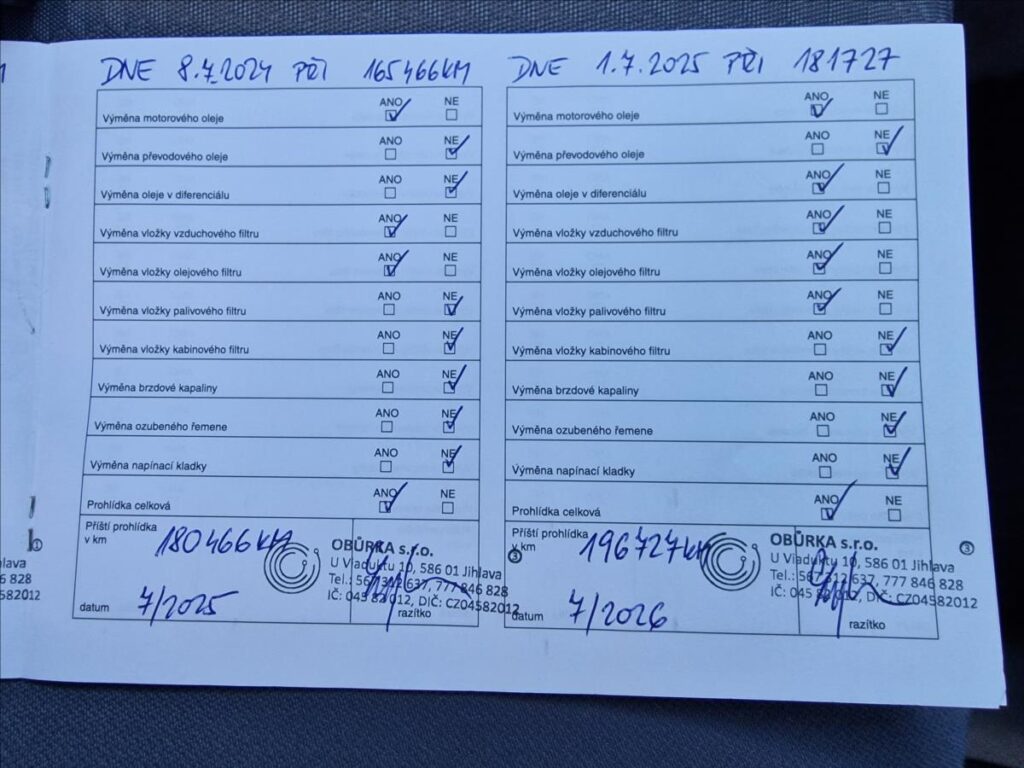 DNE 8.7.2024 PŘI 165466KM
ANO NE
Výměna motorového oleje
ANO NE
Výměna převodového oleje
ANO NE
Výměna oleje v diferenciálu
ANO NE
Výměna vložky vzduchového filtru
ANO NE
Výměna vložky olejového filtru
ANO NE
Výměna vložky palivového filtru
ANO NE
Výměna vložky kabinového filtru
ANO NE
Výměna brzdové kapaliny
ANO NE
Výměna ozubeného řemene
ANO NE
Výměna napínací kladky
ANO NE
Prohlídka celková
Příští prohlídka
v km 180466KM
datum 7/2025
OBŮRKA s.r.o.
U Viaduktu 10, 586 01 Jihlava
Tel.: 567 312 637, 777 846 828
IČ: 045 82 012, DIČ: CZ04582012
razítko
3
DNE 1.7.2025 PŘI 181727
ANO NE
Výměna motorového oleje
ANO NE
Výměna převodového oleje
ANO NE
Výměna oleje v diferenciálu
ANO NE
Výměna vložky vzduchového filtru
ANO NE
Výměna vložky olejového filtru
ANO NE
Výměna vložky palivového filtru
ANO NE
Výměna vložky kabinového filtru
ANO NE
Výměna brzdové kapaliny
ANO NE
Výměna ozubeného řemene
ANO NE
Výměna napínací kladky
ANO NE
Prohlídka celková
Příští prohlídka
v km 196727KM
datum 7/2026
OBŮRKA s.r.o.
U Viaduktu 10, 586 01 Jihlava
Tel.: 567 312 637, 777 846 828
IČ: 045 82 012, DIČ: CZ04582012
razítko
3